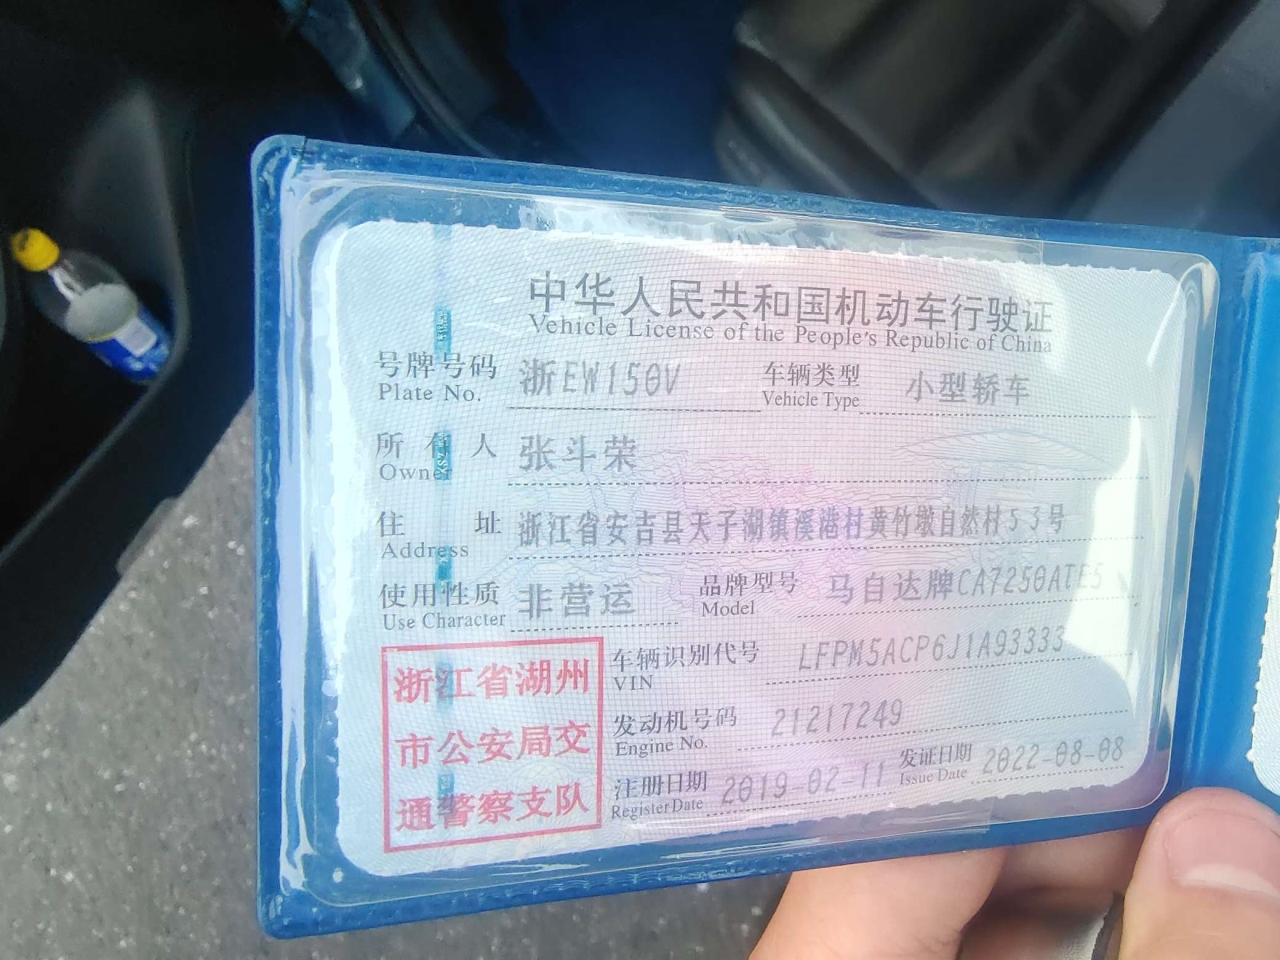 中华人民共和国机动车行驶证
Vehicle License of the People's Republic of China
号牌号码 浙EW150V 车辆类型 小型轿车
Plate No. Vehicle Type
所有人 张斗荣
Owner
住址 浙江省安吉县天子湖镇溪港村黄竹墩自然村53号
Address
使用性质 非营运 品牌型号 马自达牌CA7250ATE5
Use Character Model
车辆识别代号 LFPM5ACP6J1A93333
VIN
发动机号码 21217249
Engine No.
注册日期 2019-02-11 发证日期 2022-08-08
Register Date Issue Date
浙江省湖州
市公安局交
通警察支队